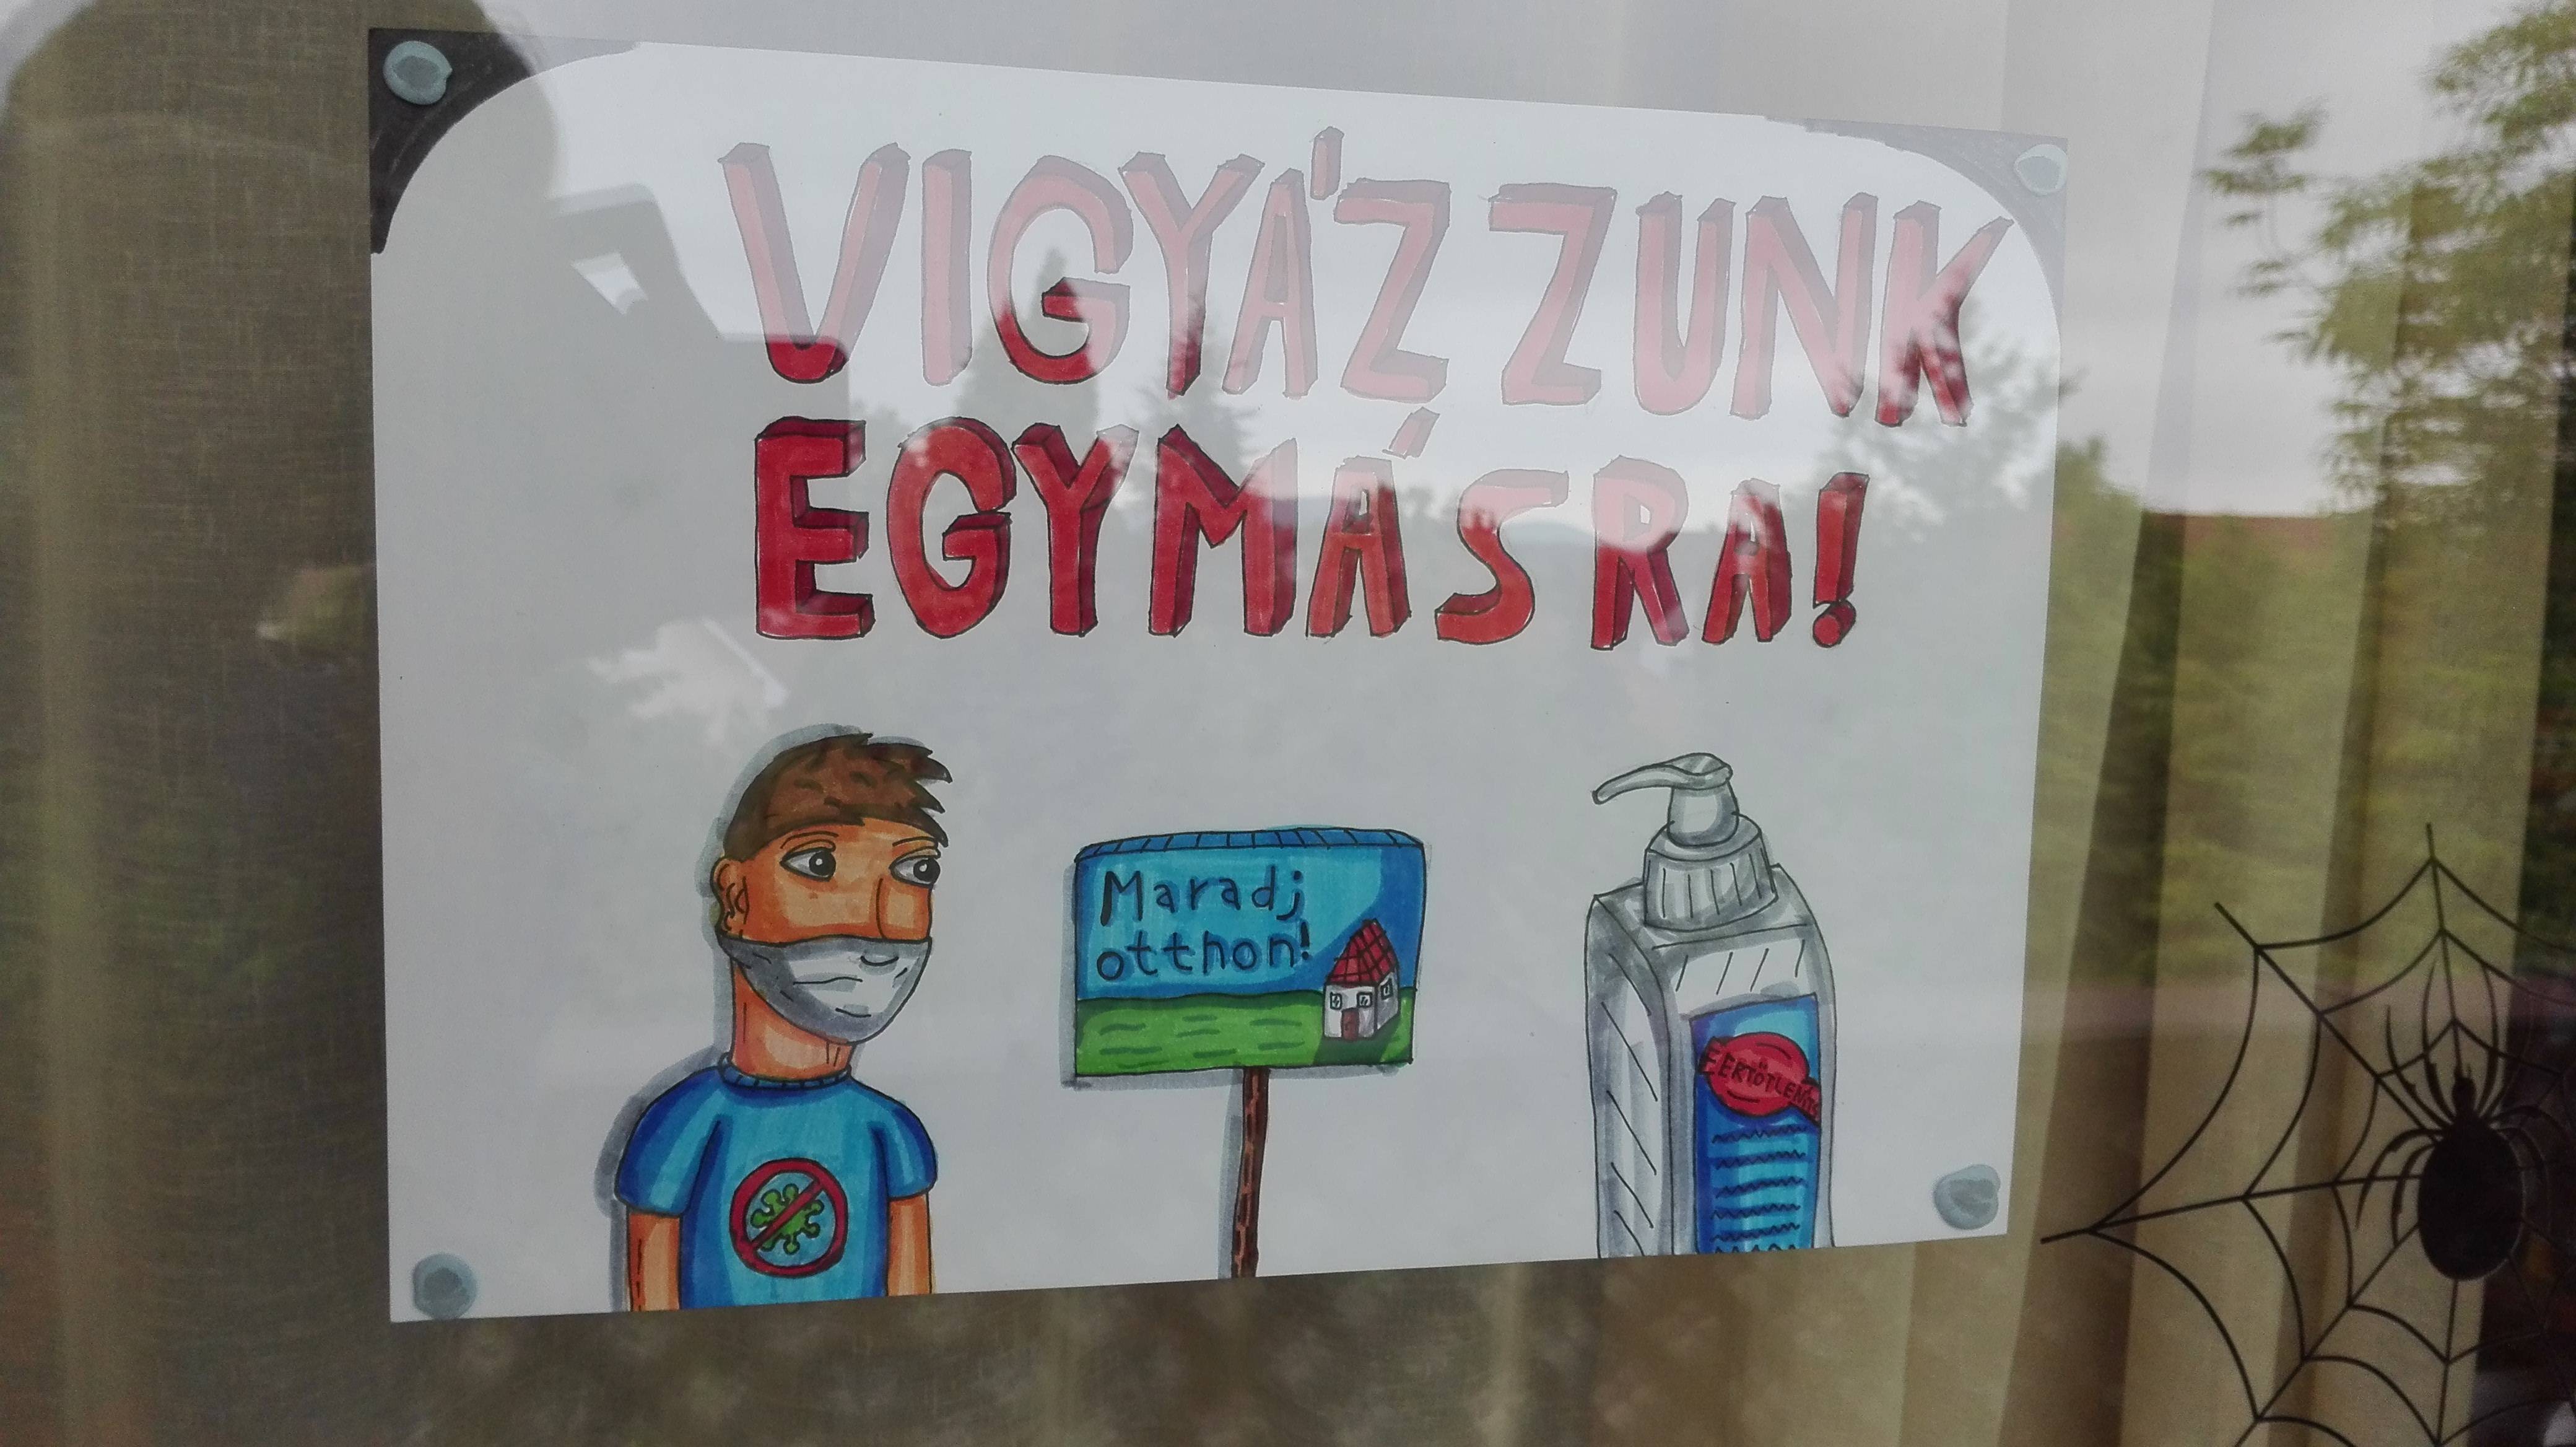 VIGYÁZZUNK
EGYMÁSRA!
Maradj
otthon!